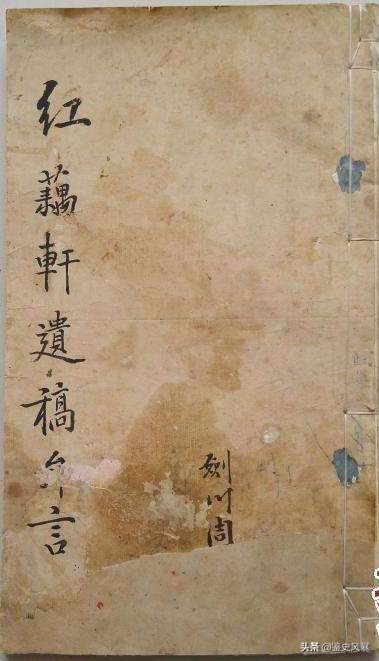 红藕軒遺稿弁言
劍川周
头条 @鉴史风暴